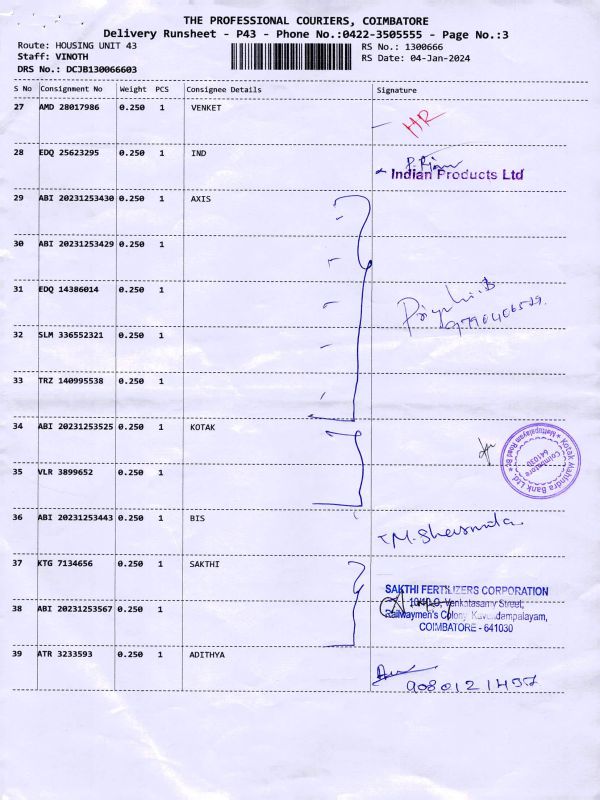 THE PROFESSIONAL COURIERS, COIMBATORE
Delivery Runsheet - P43 - Phone No.:0422-3505555 - Page No.:3
Route: HOUSING UNIT 43
RS No.: 1300666
Staff: VINOTH
RS Date: 04-Jan-2024
DRS No.: DCJB130066603
S No Consignment No Weight PCS Consignee Details Signature
27 AMD 28017986 0.250 1 VENKET
HR
28 EDQ 25623295 0.250 1 IND
Indian Products Ltd
29 ABI 20231253430 0.250 1 AXIS
30 ABI 20231253429 0.250 1
31 EDQ 14386014 0.250 1
32 SLM 336552321 0.250 1
33 TRZ 140995538 0.250 1
34 ABI 20231253525 0.250 1 KOTAK
Kotak Mahindra Bank Ltd.
Mettupalayam Road Br.
Coimbatore
641030
35 VLR 3899652 0.250 1
36 ABI 20231253443 0.250 1 BIS
37 KTG 7134656 0.250 1 SAKTHI
SAKTHI FERTILIZERS CORPORATION
Venkatasamy Street,
Railwaymen's Colony,
COIMBATORE - 641030
38 ABI 20231253567 0.250 1
39 ATR 3233593 0.250 1 ADITHYA